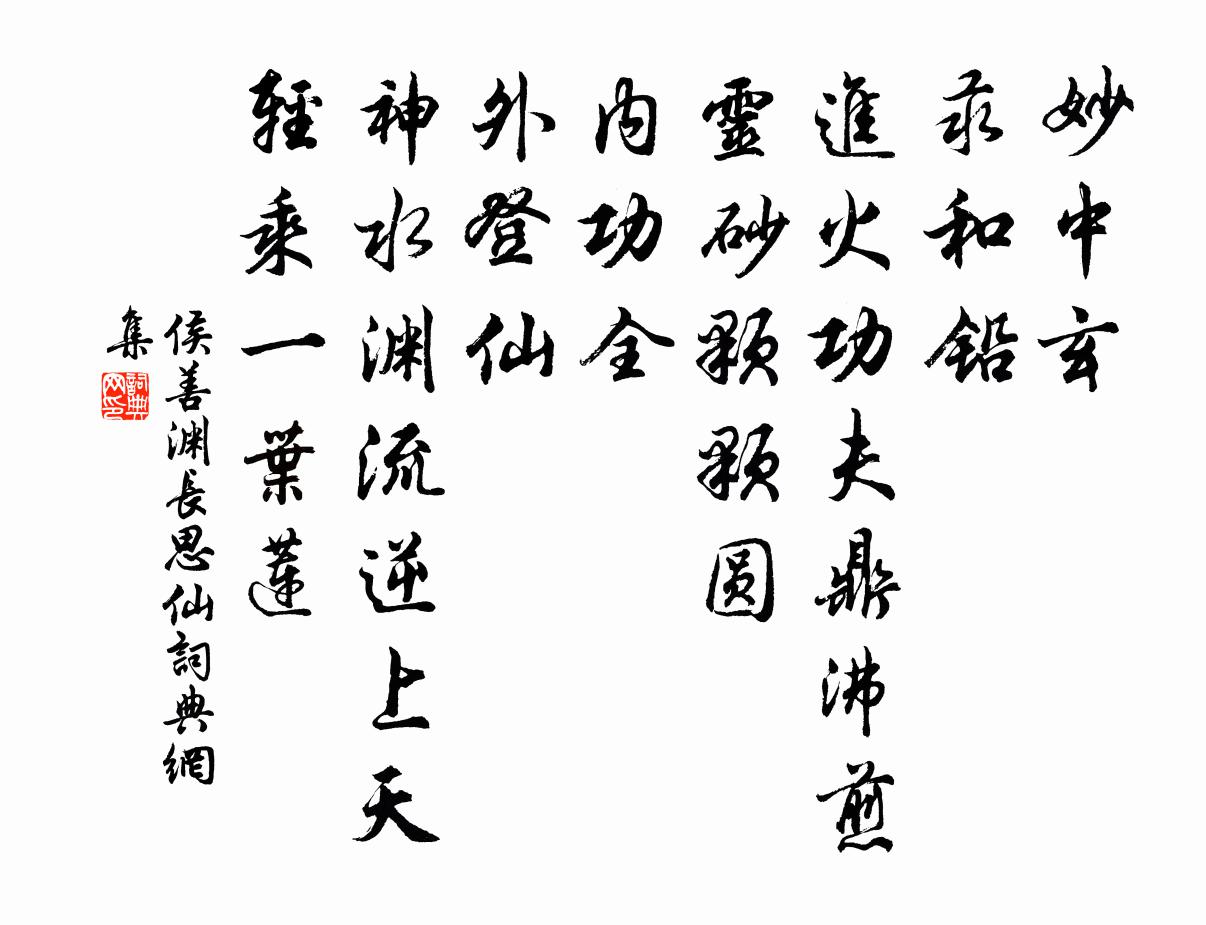 妙中玄
汞和鉛
進火功夫鼎沸煎
靈砂顆顆圓
内功全
外登仙
神水渊流逆上天
輕乘一葉蓮
侯善渊長思仙詞典網
集
詞典
网印